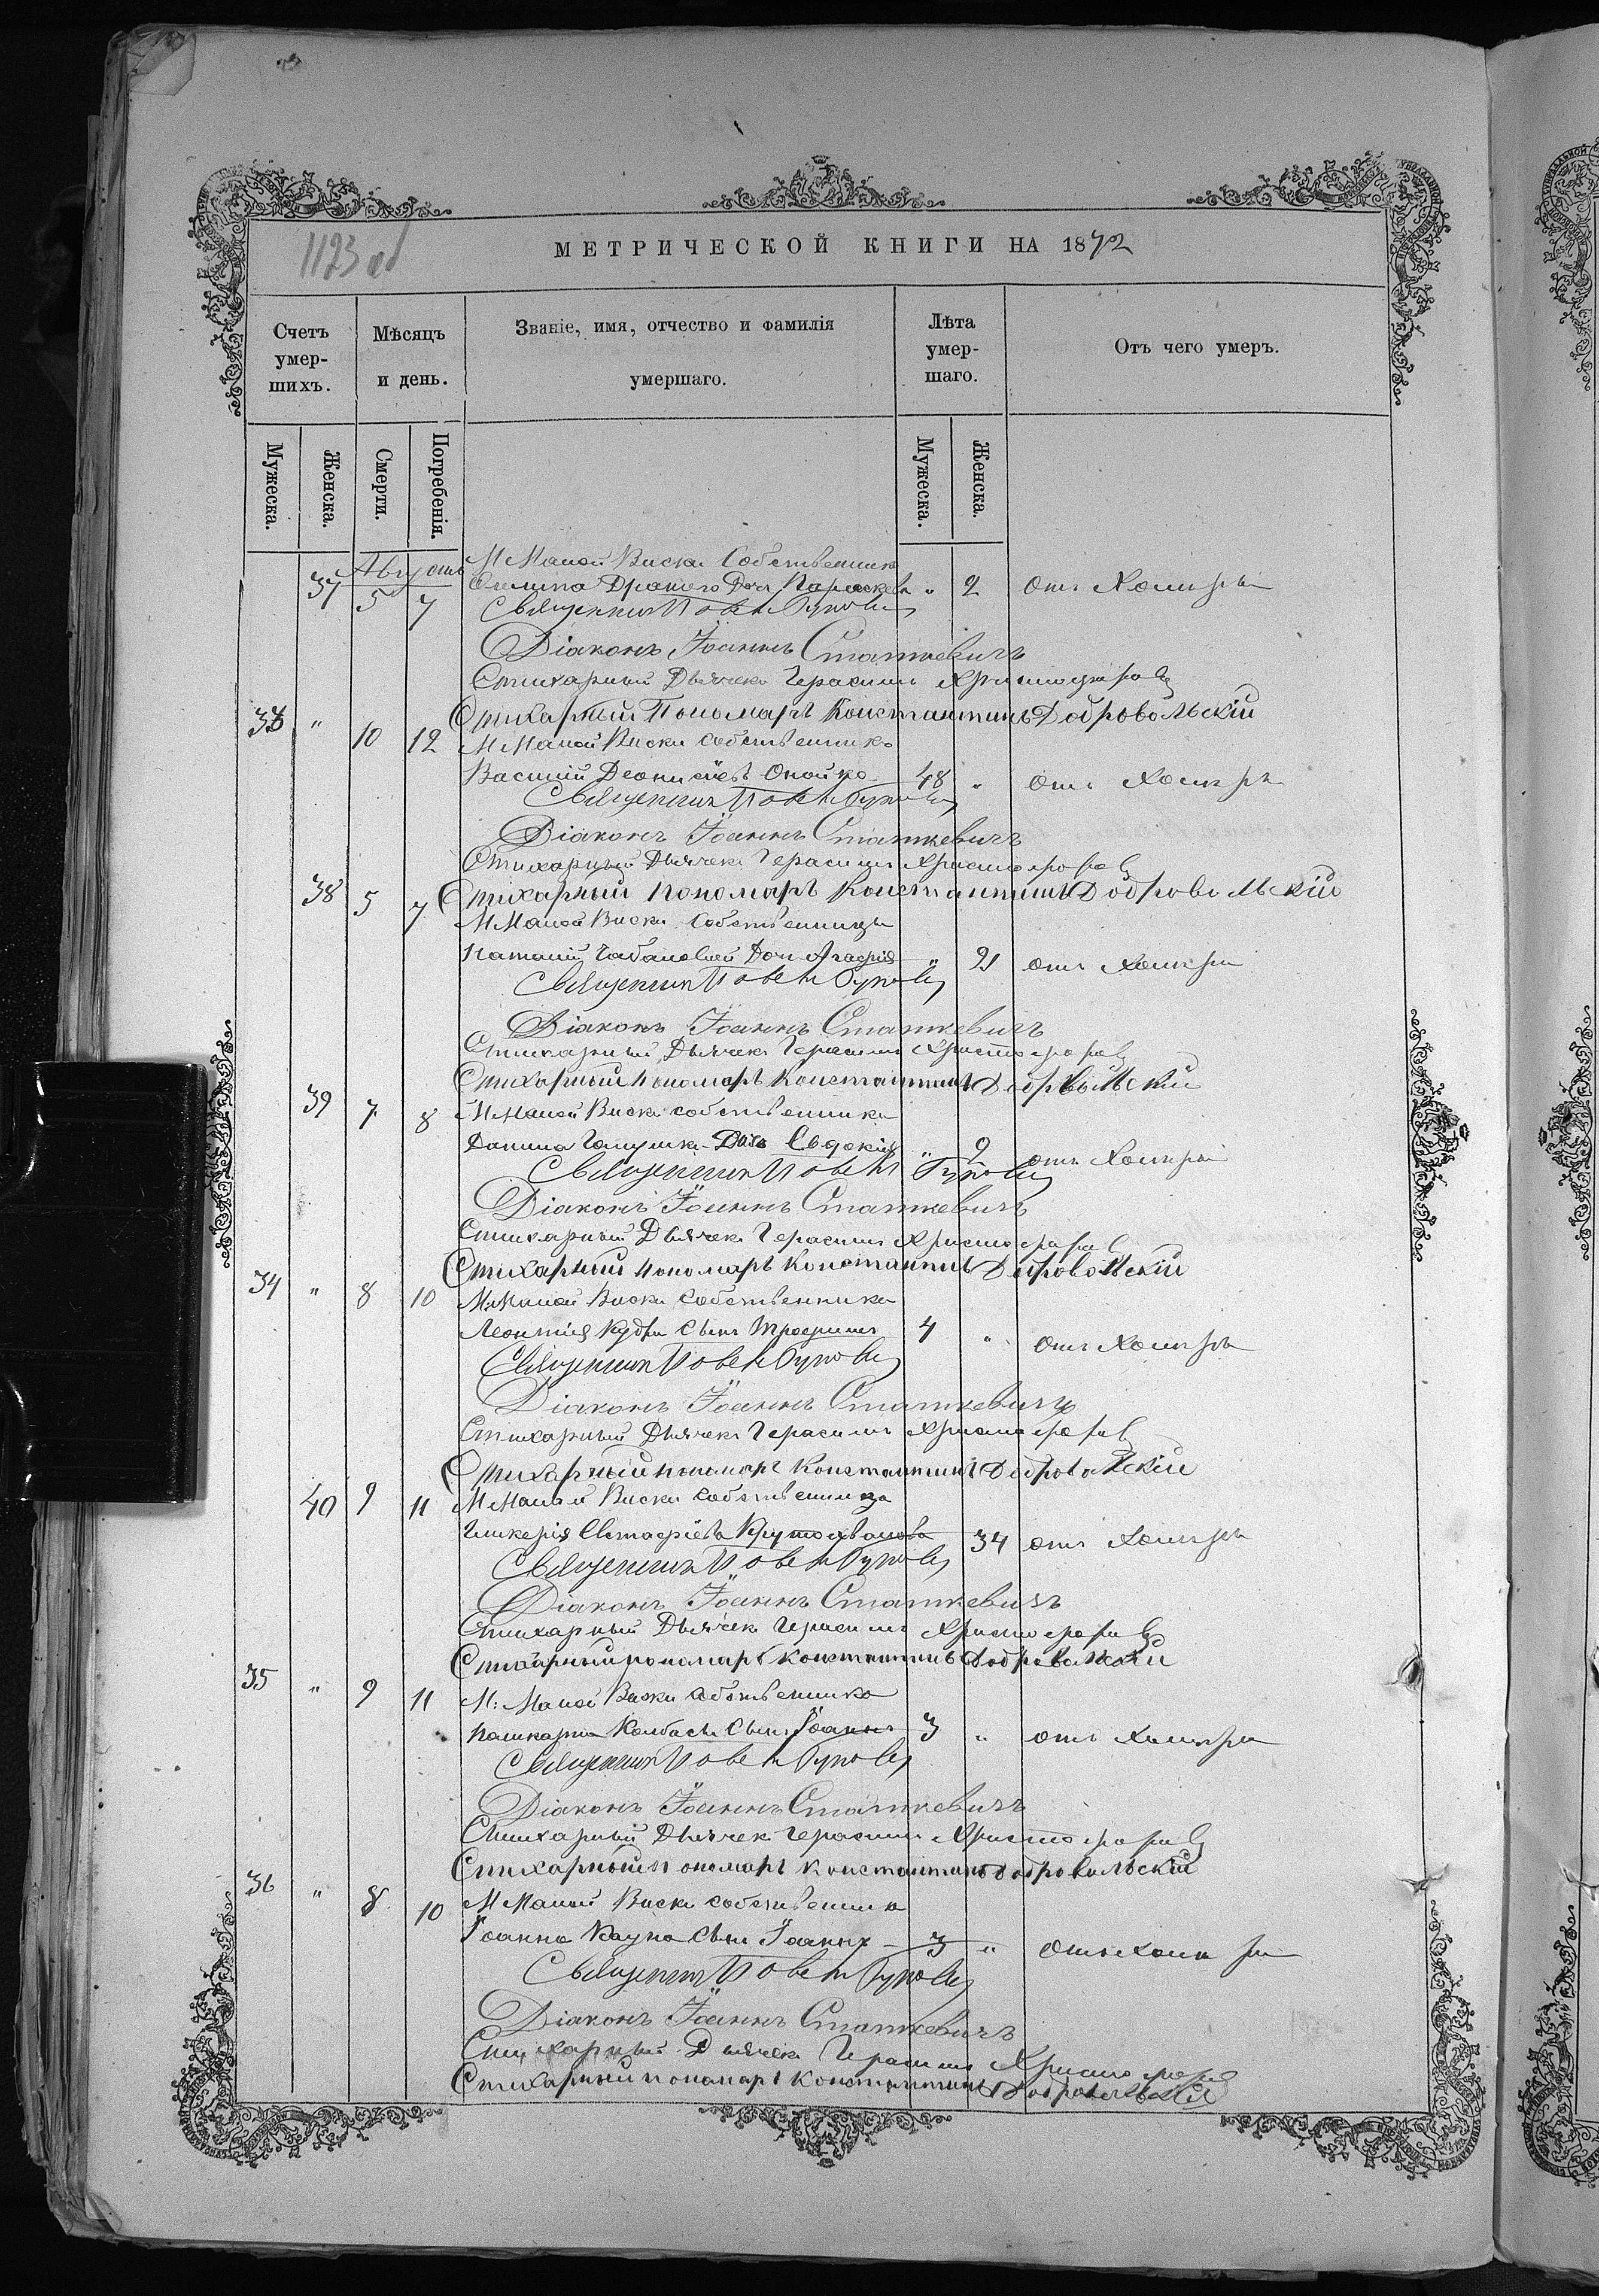 1123 об
МЕТРИЧЕСКОЙ КНИГИ НА 1872
Счетъ умер-шихъ.
Мѣсяцъ и день.
Званіе, имя, отчество и фамилія умершаго.
Лѣта умер-шаго.
Отъ чего умеръ.
Мужеска.
Женска.
Смерти.
Погребенія.
Мужеска.
Женска.
Августъ
М Малой Виски Собственника
37 5 7 Дочь Параскева " 2 отъ Холеры
Священникъ
Діаконъ Іоаннъ Статкевичъ
Стихарный Дьячекъ Герасимъ Христофоровъ
Стихарный Пономарь Константинъ Добровольскій
33 " 10 12 М Малой Виски собственникъ
Василій Деонисіевъ Онойко 48 " отъ Холеры
Священникъ
Діаконъ Іоаннъ Статкевичъ
Стихарный Дьячекъ Герасимъ Христофоровъ
Стихарный пономарь Константинъ Добровольскій
38 5 7 М Малой Виски Собственницы
Наталіи Чабановой Дочь Агафія " 21 отъ Холеры
Священникъ
Діаконъ Іоаннъ Статкевичъ
Стихарный Дьячекъ Герасимъ Христофоровъ
Стихарный пономарь Константинъ Добровольскій
39 7 8 М Малой Виски собственника
Данила Галушка Дочь Евдокія " 2 отъ Холеры
Священникъ
Діаконъ Іоаннъ Статкевичъ
Стихарный Дьячекъ Герасимъ Христофоровъ
Стихарный пономарь Константинъ Добровольскій
34 " 8 10 М: Малой Виски собственника
Леонтія Кудри Сынъ Трофимъ 4 " отъ Холеры
Священникъ
Діаконъ Іоаннъ Статкевичъ
Стихарный Дьячекъ Герасимъ Христофоровъ
Стихарный пономарь Константинъ Добровольскій
40 9 11 М Малой Виски собственница
Гликерія Евстафіева 34 отъ Холеры
Священникъ
Діаконъ Іоаннъ Статкевичъ
Стихарный Дьячекъ Герасимъ Христофоровъ
Стихарный пономарь Константинъ Добровольскій
35 " 9 11 М: Малой Виски собственника
Поликарпа Колбасы Сынъ Іоаннъ 3 " отъ Холеры
Священникъ
Діаконъ Іоаннъ Статкевичъ
Стихарный Дьячекъ Герасимъ Христофоровъ
Стихарный пономарь Константинъ Добровольскій
36 " 8 10 М Малой Виски собственника
Іоанна Сынъ Іоаннъ 3 " отъ холеры
Священникъ
Діаконъ Іоаннъ Статкевичъ
Стихарный Дьячекъ Герасимъ Христофоровъ
Стихарный пономарь Константинъ Добровольскій